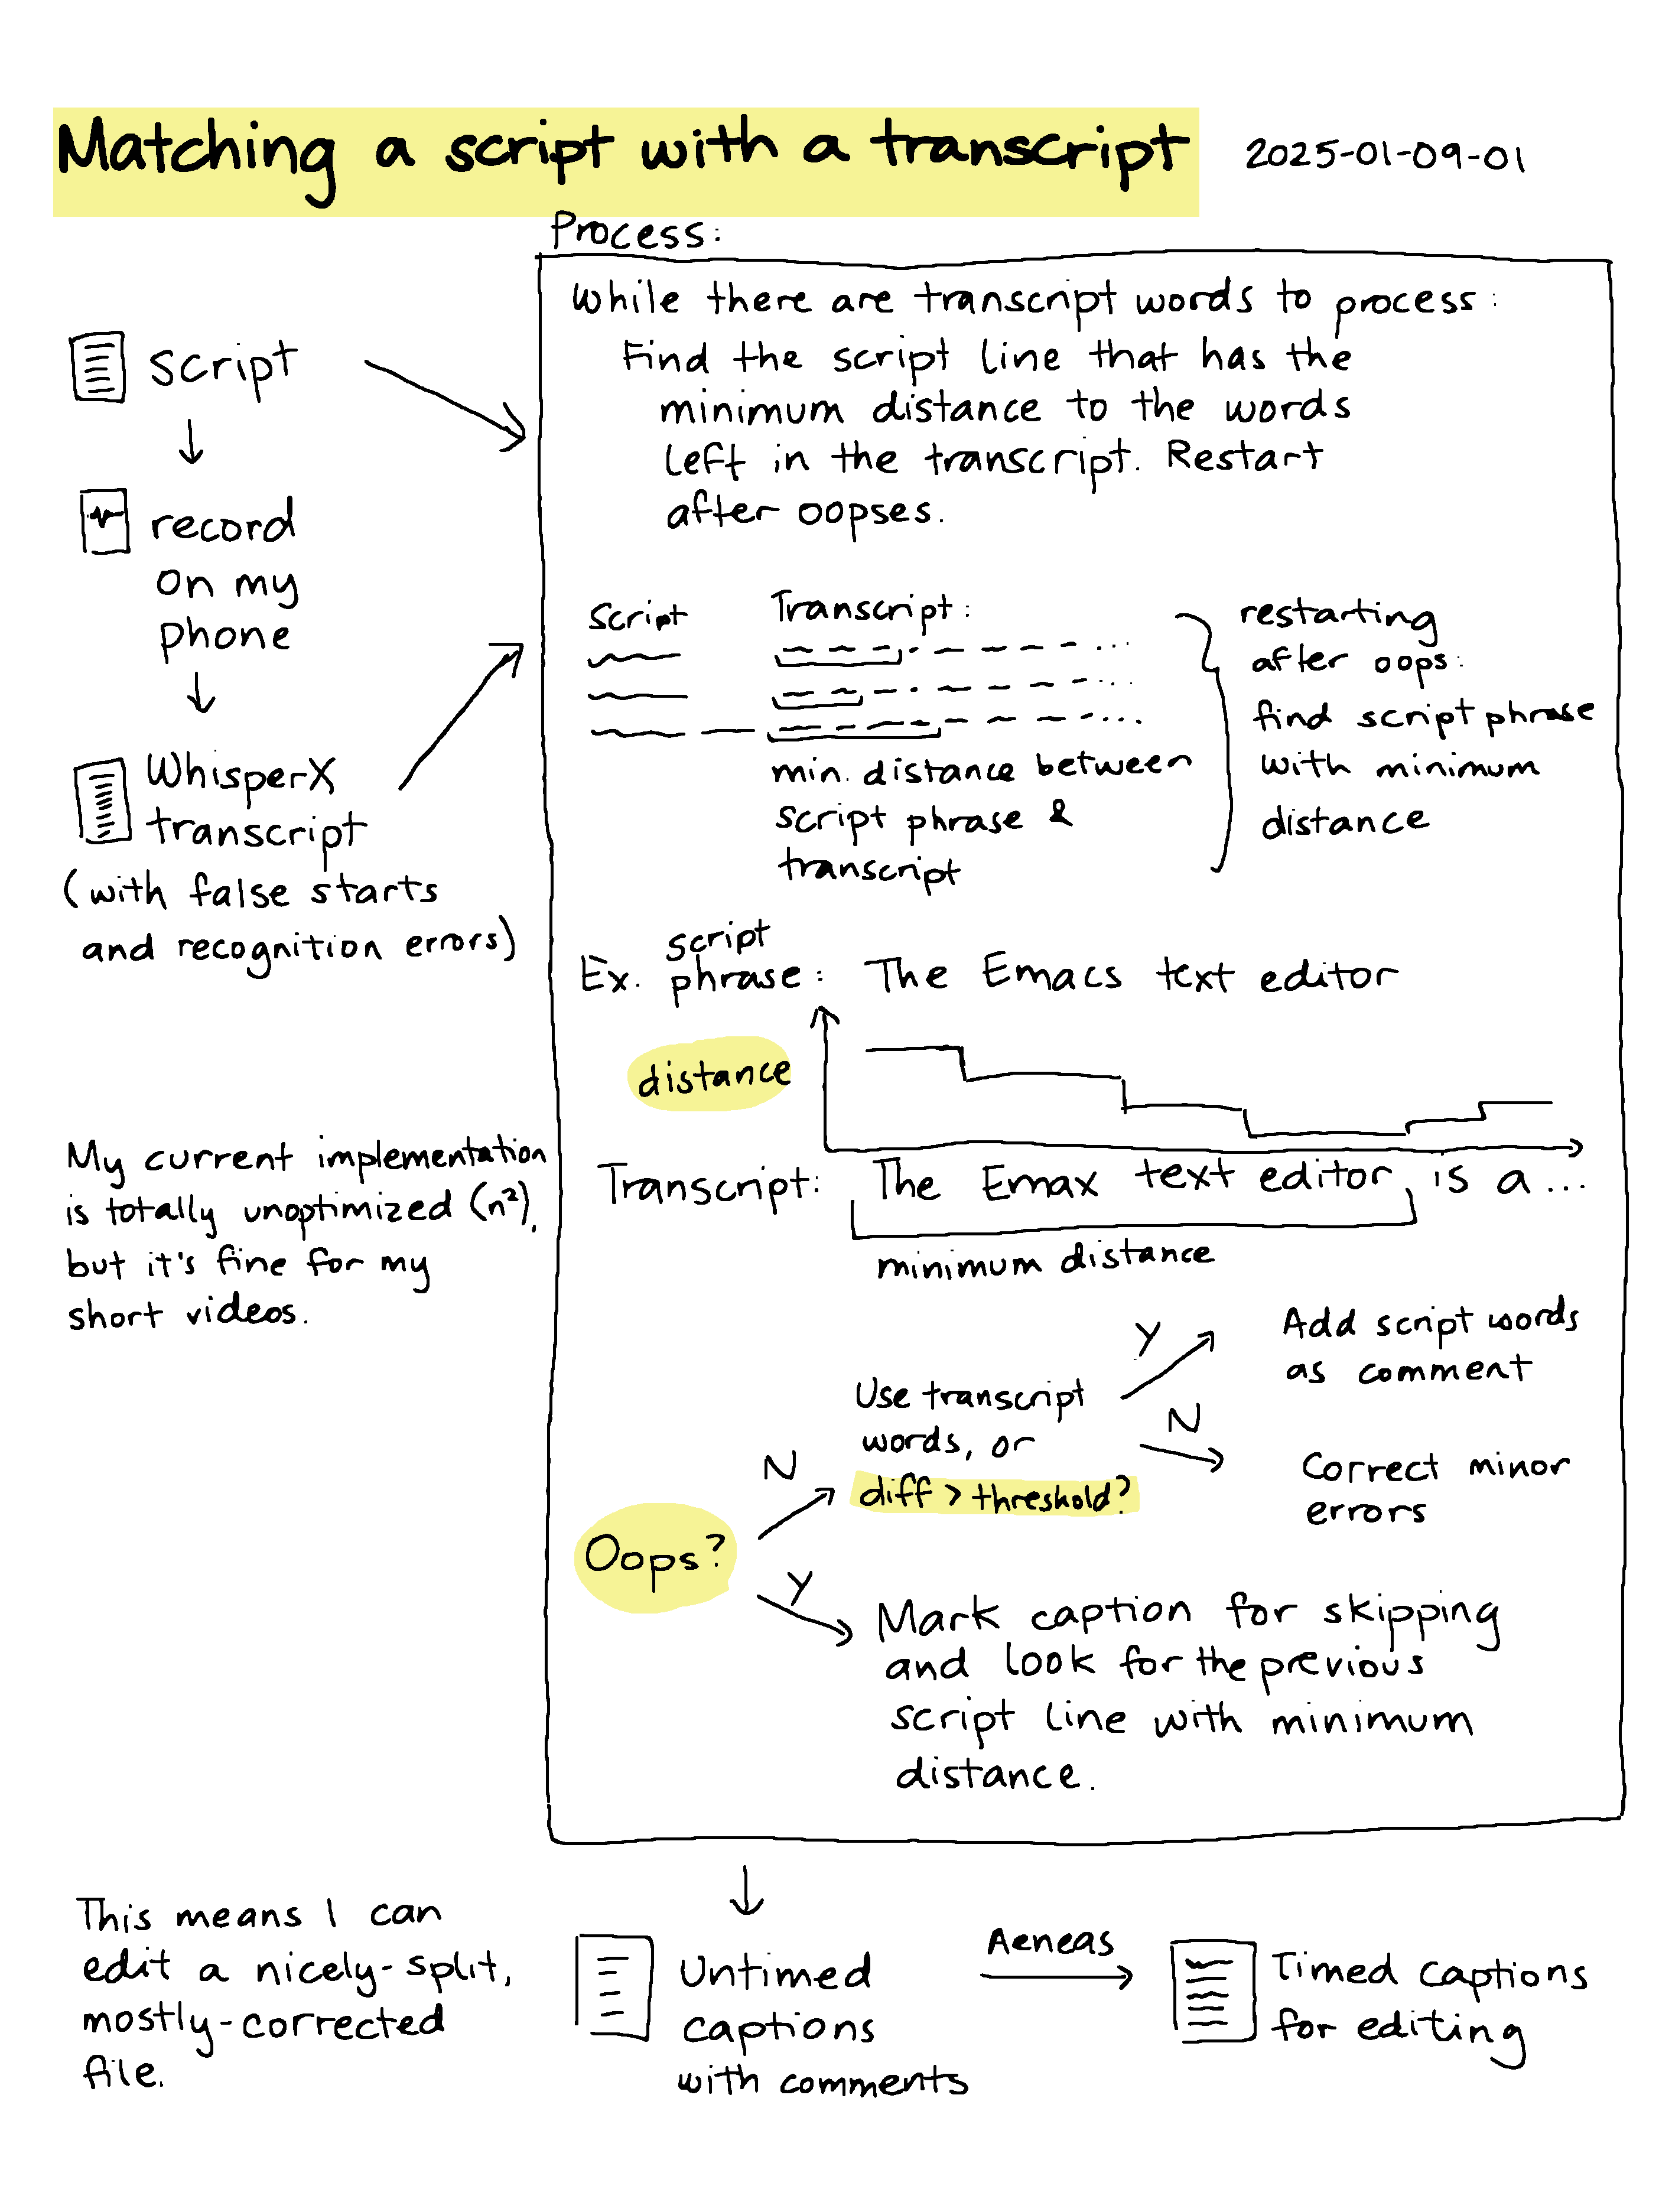 Matching a script with a transcript
2025-01-09-01
script
record
on my
phone
WhisperX
transcript
(with false starts
and recognition errors)
My current implementation
is totally unoptimized (n²),
but it's fine for my
short videos.
Process:
While there are transcript words to process:
Find the script line that has the
minimum distance to the words
left in the transcript. Restart
after oopses.
Script
Transcript:
min. distance between
script phrase &
transcript
restarting
after oops:
find script phrase
with minimum
distance
Ex. script
phrase: The Emacs text editor
distance
Transcript: The Emax text editor, is a...
minimum distance
Oops?
N
Use transcript
words, or
diff > threshold?
Y
Add script words
as comment
N
Correct minor
errors
Y
Mark caption for skipping
and look for the previous
script line with minimum
distance.
This means I can
edit a nicely-split,
mostly-corrected
file.
Untimed
captions
with comments
Aeneas
Timed captions
for editing